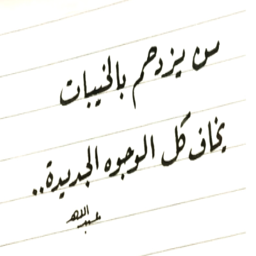 من يزدحم بالخيبات
يخاف كل الوجوه الجديدة..
عبدالله